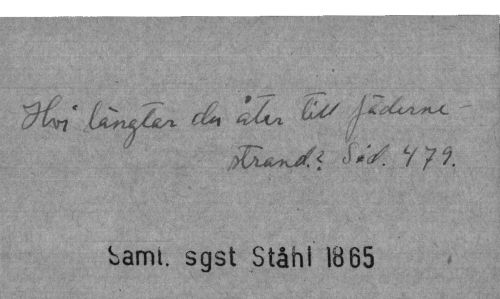 Hvi längtar du åter till fäderne-
strand.? Sid. 479.
Saml. sgst Ståhl 1865